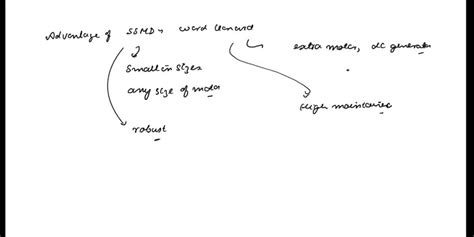 Advantage of SSMD > ward leonard
extra motor, dc generator
Small in sizes
any size of motor
High maintaince
robust